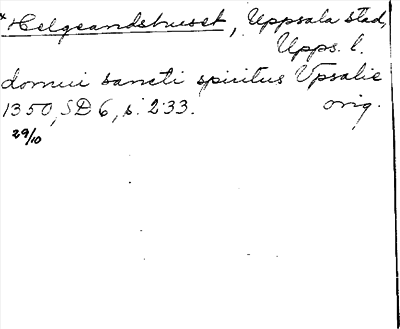 *Helgeandshuset, Uppsala stad,
Upps. l.
domui sancti spiritus Vpsalie
1350, SD 6, s. 233. orig.
29/10